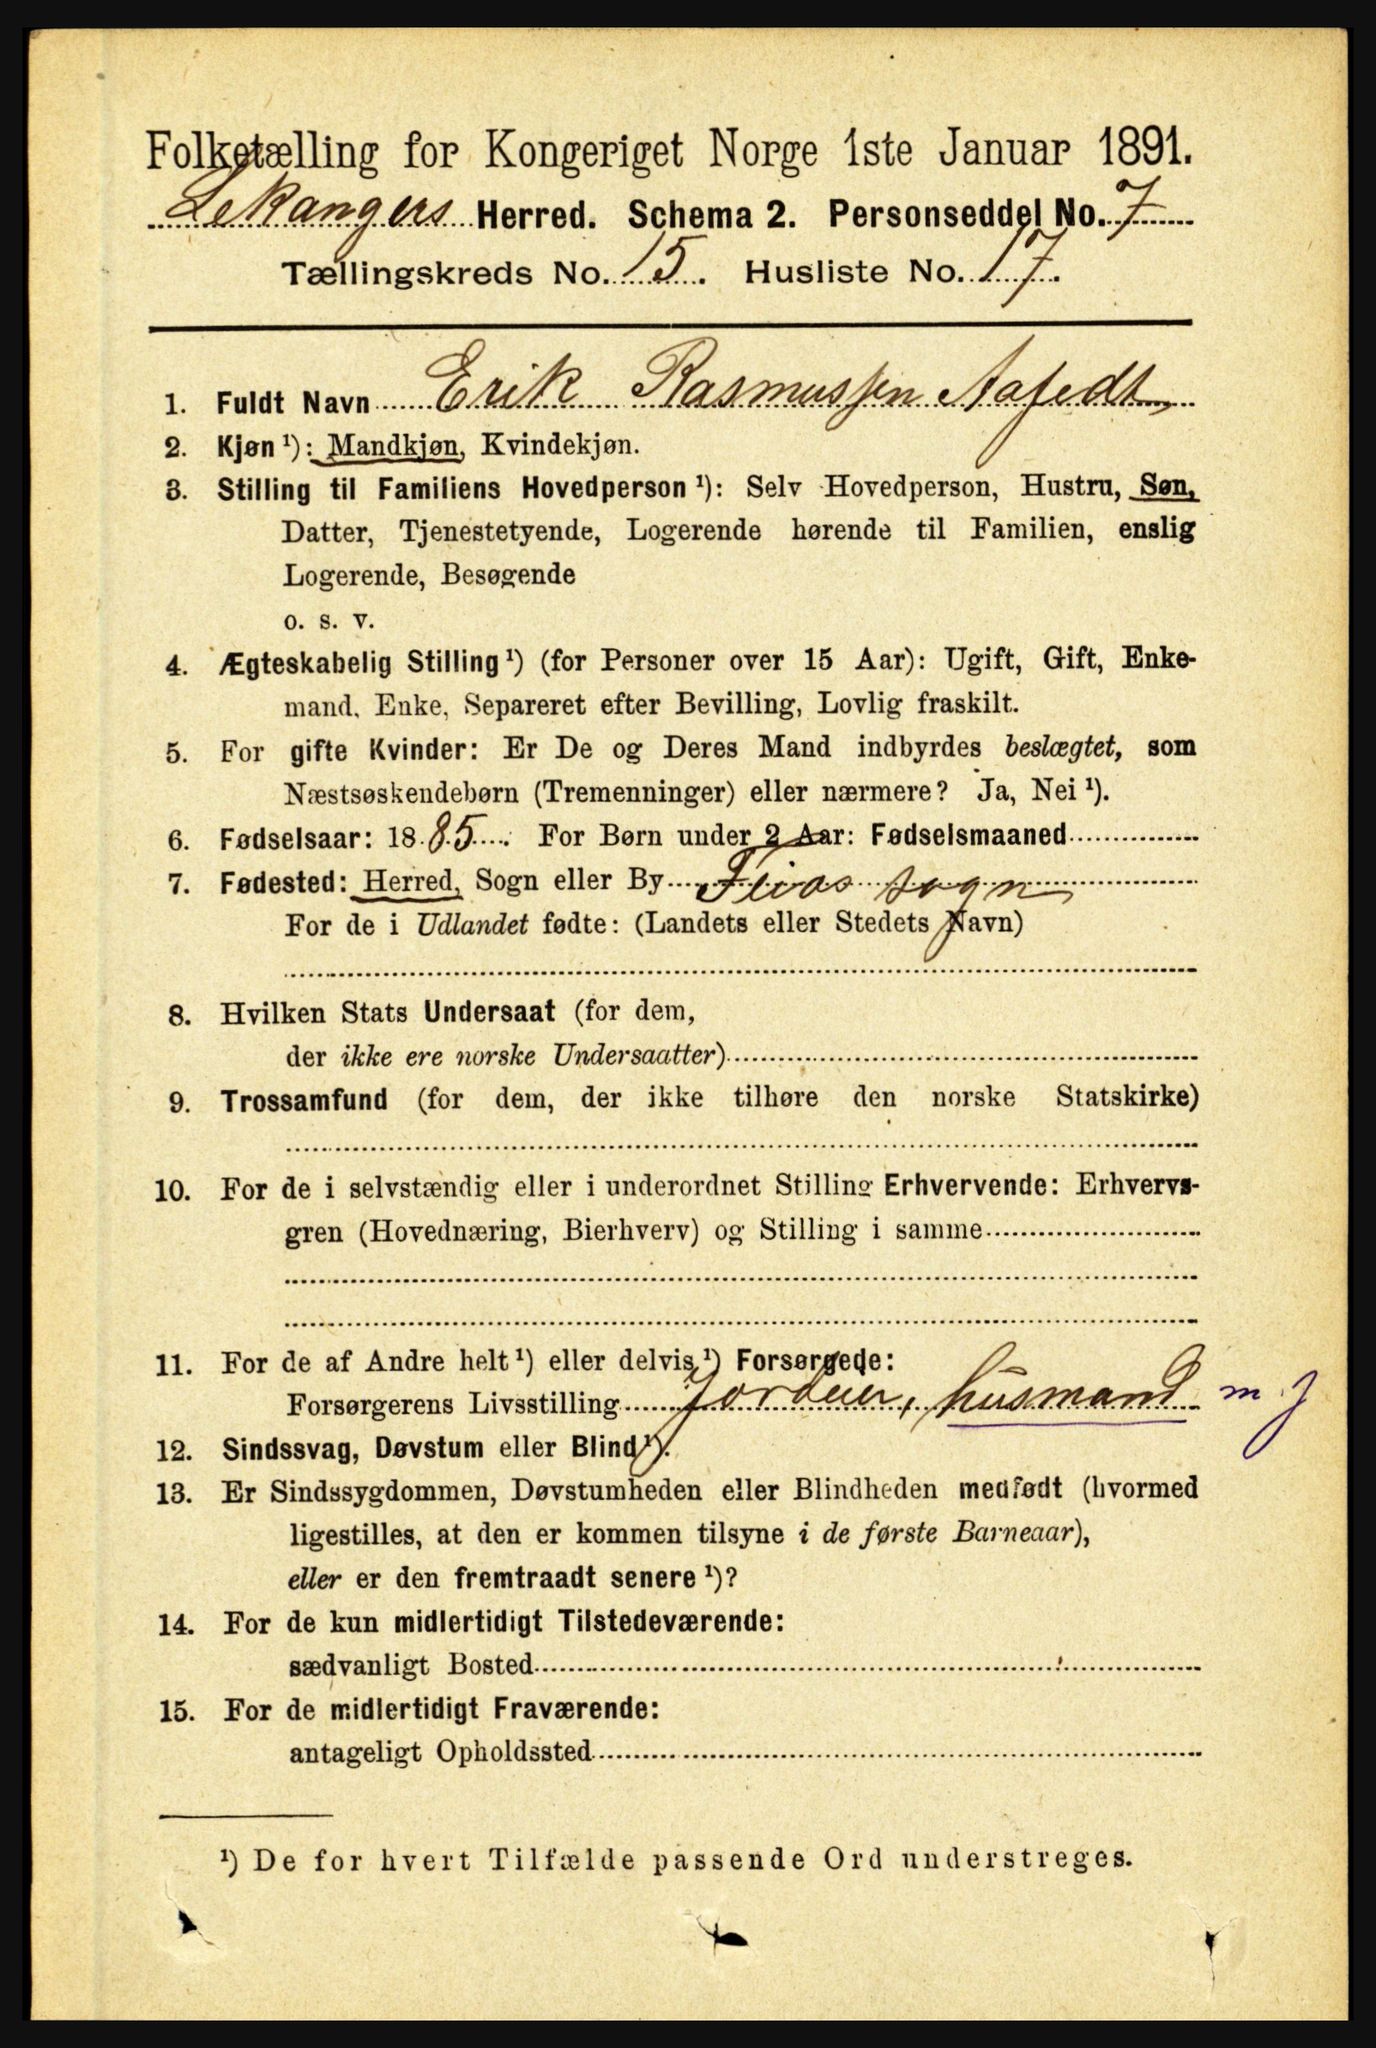 Folketælling for Kongeriget Norge 1ste Januar 1891.
Lekangers Herred. Schema 2. Personseddel No. 7
Tællingskreds No. 15. Husliste No. 17.
1. Fuldt Navn Erik Rasmussen Aafedt
2. Kjøn ¹): Mandkjøn, Kvindekjøn.
3. Stilling til Familiens Hovedperson ¹): Selv Hovedperson, Hustru, Søn,
Datter, Tjenestetyende, Logerende hørende til Familien, enslig
Logerende, Besøgende
o. s. v.
4. Ægteskabelig Stilling ¹) (for Personer over 15 Aar): Ugift, Gift, Enke-
mand, Enke, Separeret efter Bevilling, Lovlig fraskilt.
5. For gifte Kvinder: Er De og Deres Mand indbyrdes beslægtet, som
Næstsøskendebørn (Tremenninger) eller nærmere? Ja, Nei ¹).
6. Fødselsaar: 1885. For Børn under 2 Aar: Fødselsmaaned
7. Fødested: Herred, Sogn eller By Feios sogn
For de i Udlandet fødte: (Landets eller Stedets Navn)
8. Hvilken Stats Undersaat (for dem,
der ikke ere norske Undersaatter)
9. Trossamfund (for dem, der ikke tilhøre den norske Statskirke)
10. For de i selvstændig eller i underordnet Stilling Erhvervende: Erhvervs-
gren (Hovednæring, Bierhverv) og Stilling i samme
11. For de af Andre helt ¹) eller delvis ¹) Forsørgede:
Forsørgerens Livsstilling Jordeier, husmand m. j
12. Sindssvag, Døvstum eller Blind ¹).
13. Er Sindssygdommen, Døvstumheden eller Blindheden medfødt (hvormed
ligestilles, at den er kommen tilsyne i de første Barneaar),
eller er den fremtraadt senere ¹)?
14. For de kun midlertidigt Tilstedeværende:
sædvanligt Bosted
15. For de midlertidigt Fraværende:
antageligt Opholdssted
¹) De for hvert Tilfælde passende Ord understreges.